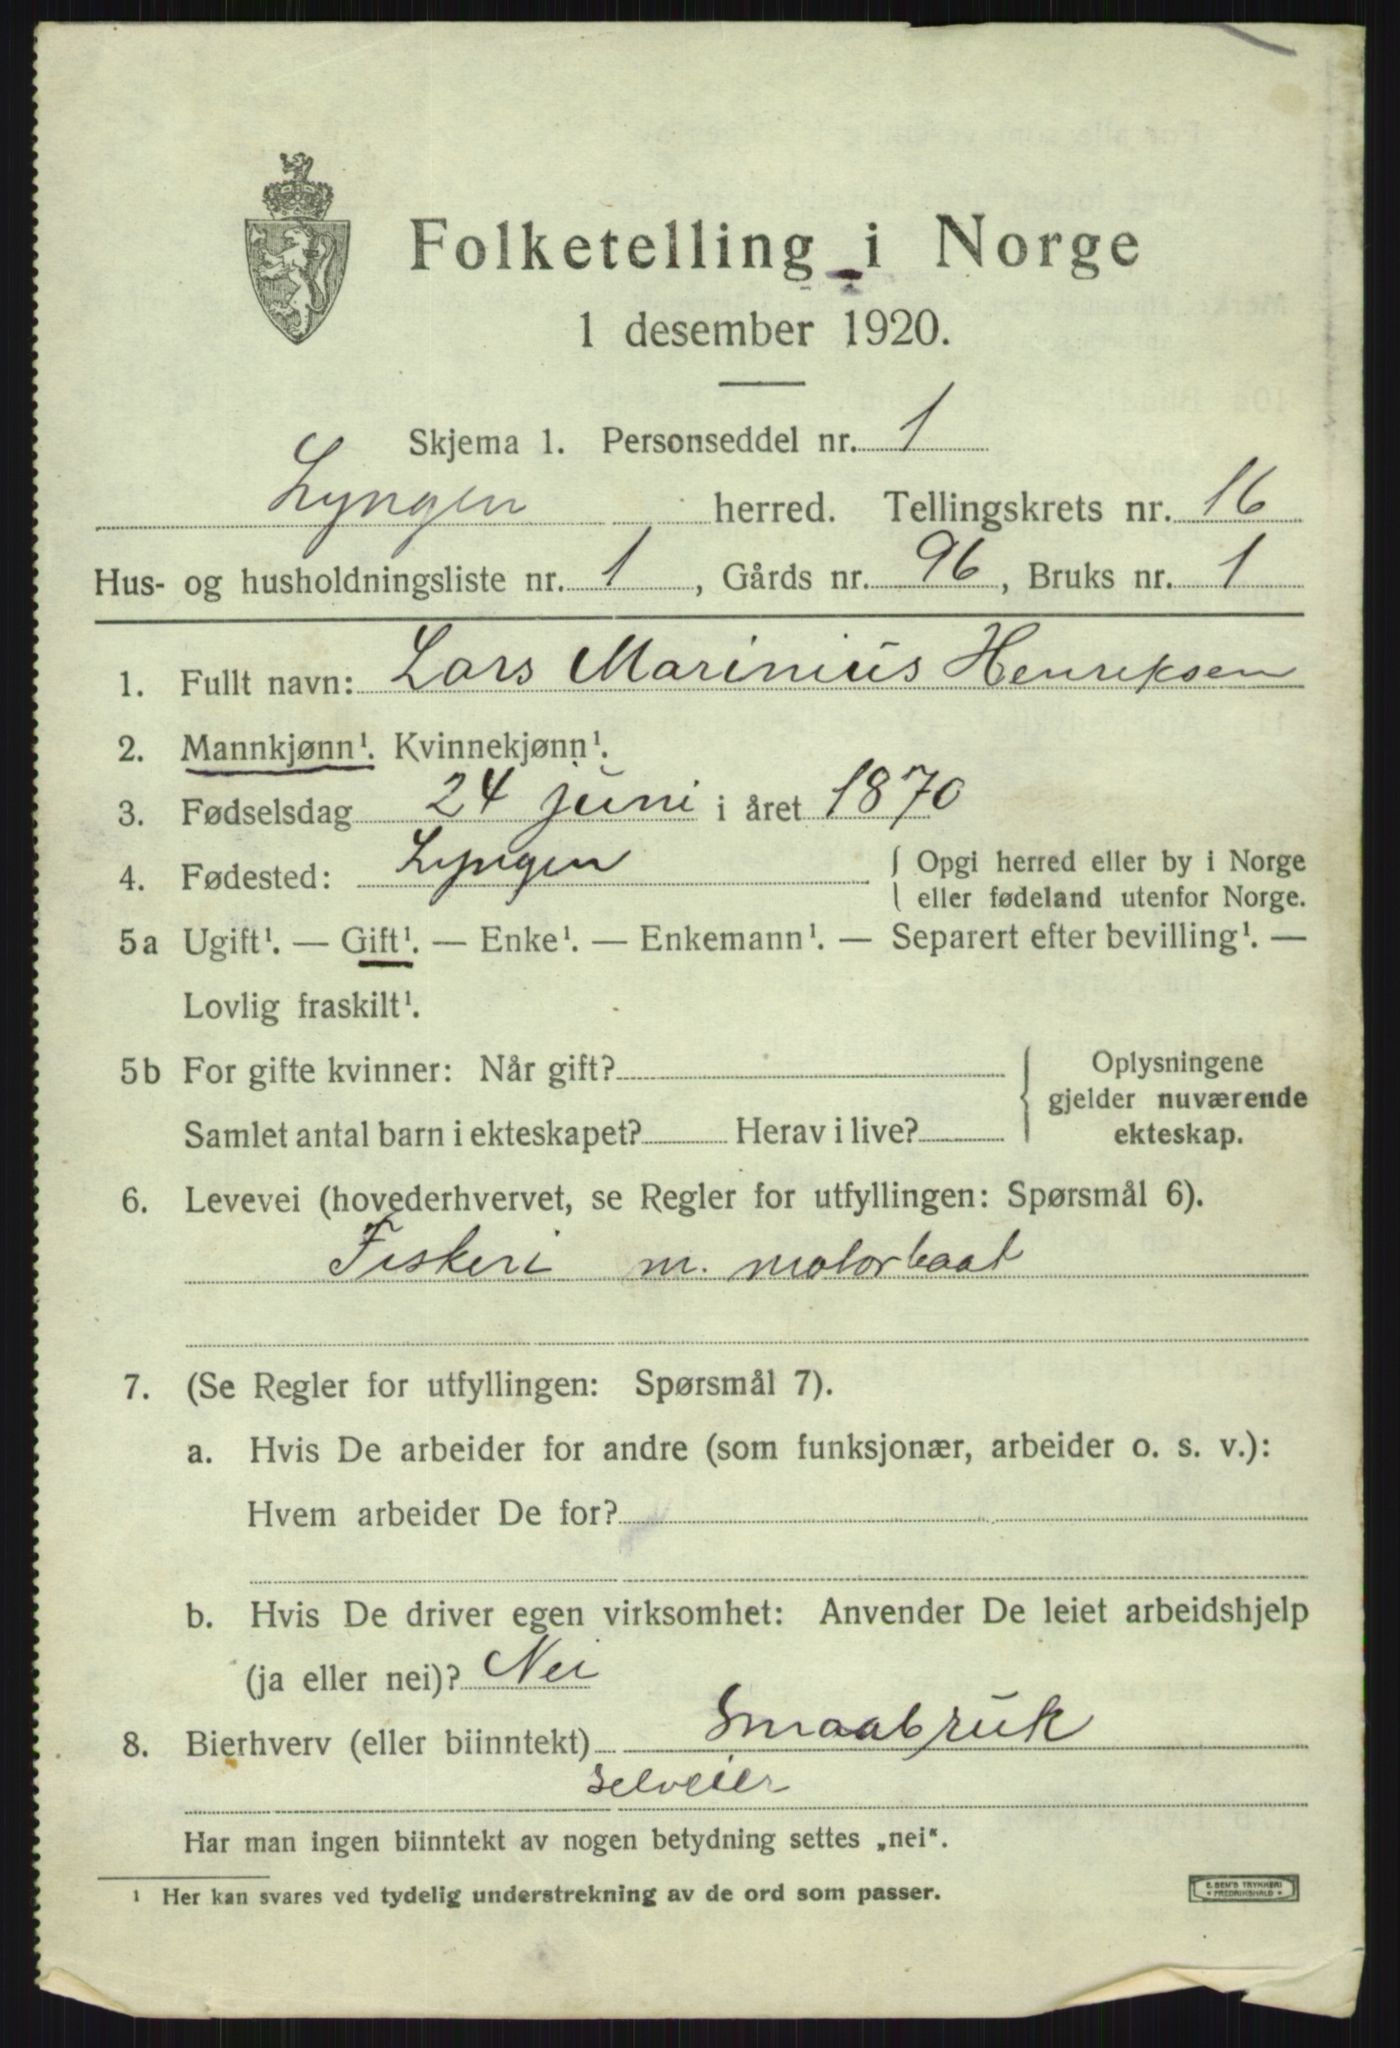 Folketelling i Norge
1 desember 1920.
Skjema 1. Personseddel nr. 1
Lyngen herred. Tellingskrets nr. 16
Hus- og husholdningsliste nr. 1, Gårds nr. 96, Bruks nr. 1
1. Fullt navn: Lars Marinius Henriksen
2. Mannkjønn¹. Kvinnekjønn¹.
3. Fødselsdag 24 juni i året 1870
4. Fødested: Lyngen { Opgi herred eller by i Norge
eller fødeland utenfor Norge.
5a Ugift¹. — Gift¹. — Enke¹. — Enkemann¹. — Separert efter bevilling¹. —
Lovlig fraskilt¹.
5b For gifte kvinner: Når gift? { Oplysningene
gjelder nuværende
Samlet antal barn i ekteskapet? Herav i live? ekteskap.
6. Levevei (hovederhvervet, se Regler for utfyllingen: Spørsmål 6).
Fiskeri m. motorbaat
7. (Se Regler for utfyllingen: Spørsmål 7).
a. Hvis De arbeider for andre (som funksjonær, arbeider o. s. v.):
Hvem arbeider De for?
b. Hvis De driver egen virksomhet: Anvender De leiet arbeidshjelp
(ja eller nei)? Nei
8. Bierhverv (eller biinntekt) Smaabruk
selveier
Har man ingen biinntekt av nogen betydning settes „nei".
¹ Her kan svares ved tydelig understrekning av de ord som passer.
E. SEM'S TRYKKERI
• FREDRIKSHALD •